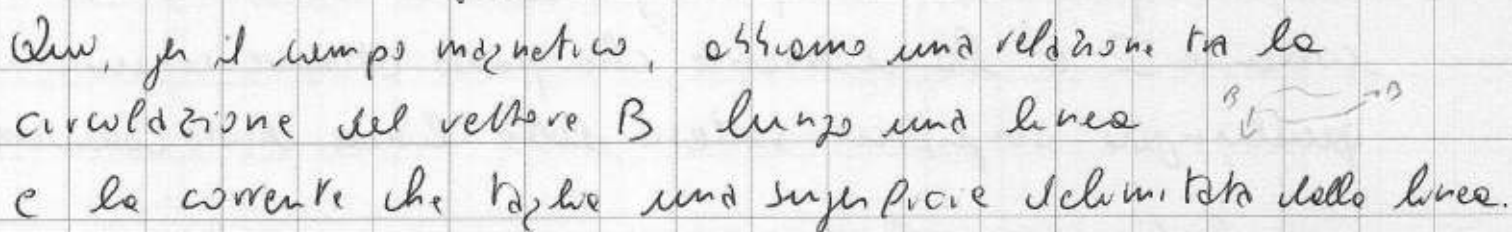 Qui, per il campo magnetico, abbiamo una relazione tra la
circolazione del vettore B lungo una linea B B
e la corrente che taglia una superficie delimitata dalla linea.